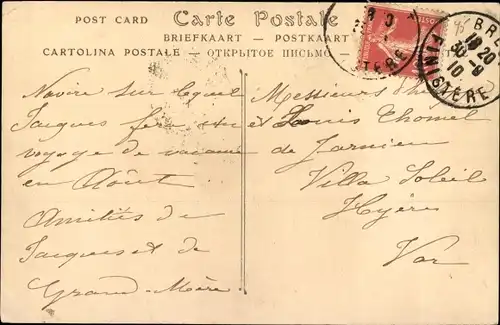 POST CARD Carte Postale
BRIEFKAART - POSTKAART
CARTOLINA POSTALE - ОТКРЫТОЕ ПИСЬМО
BR
18 20
30 -9
10
FINISTÈRE
Navire sur lequel
Jacques fera
voyage de
en Août.
Amitiés de
Jacques et de
Grand-Mère
Messieurs
et Louis Thomel
de Jarnieu
Villa Soleil
Hyères
Var